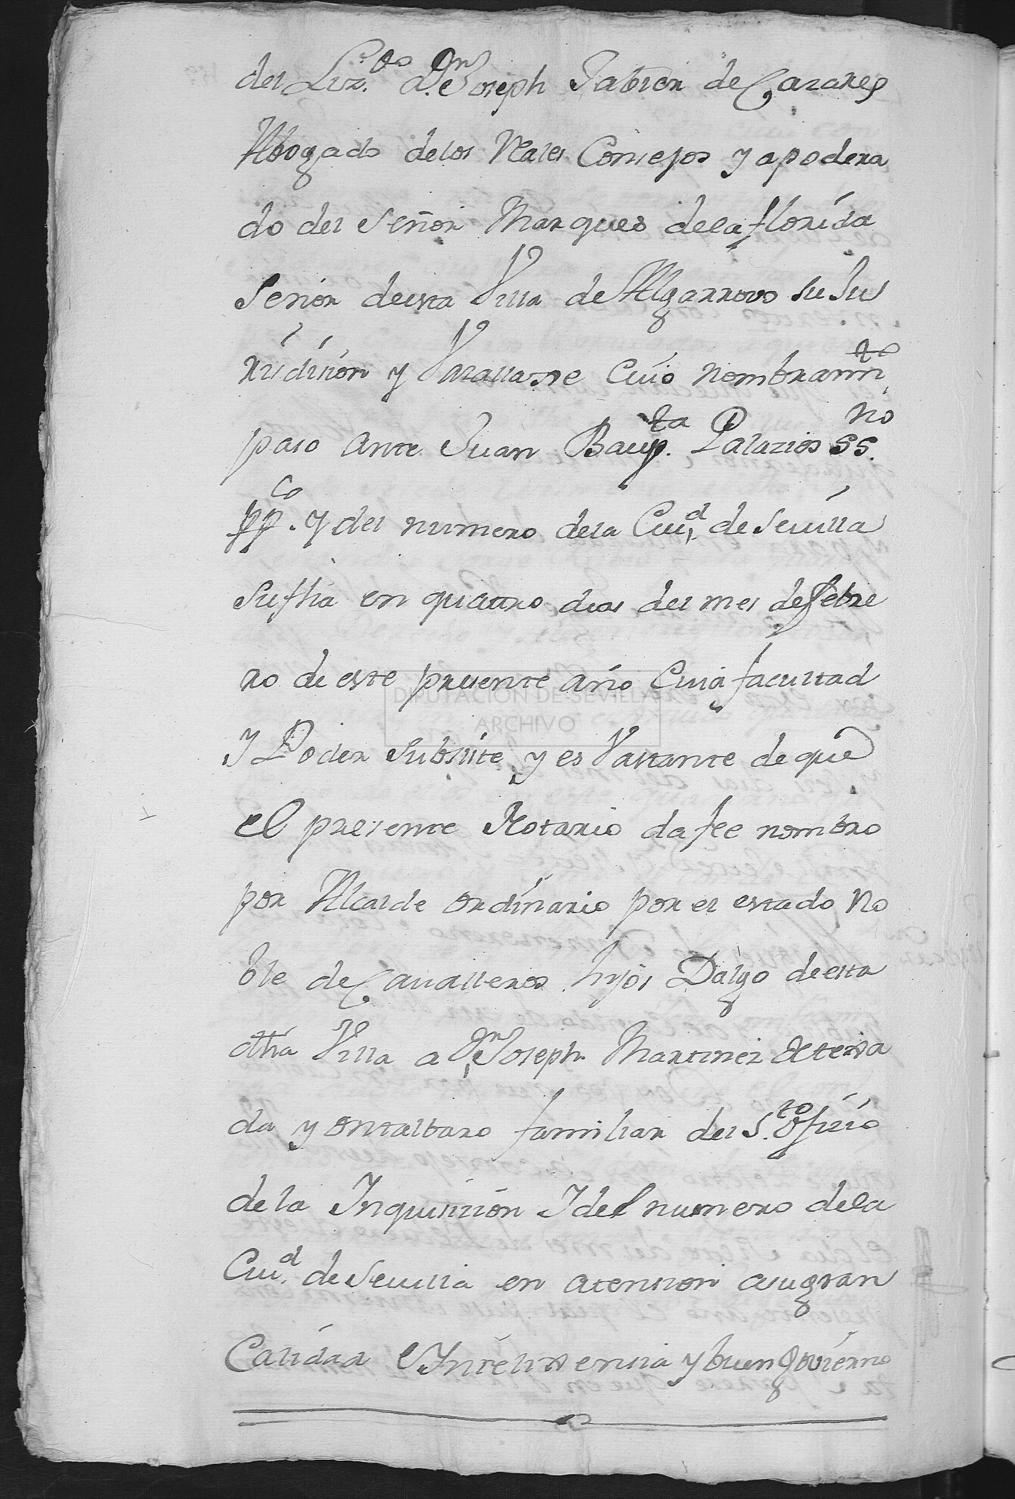 del Liz.do Dn Joseph Fabron de Cazares
Abogado delos Rales Consejos y apodera
do del Señor Marques dela florida
Señor deesta Villa de Algarrovo su Ju
risdision y Vasallaxe Cuio nombramto
paso ante Juan Baupta Palazios SSno
ppco. y del numero dela Ciud de Sevilla
su fha en quattro dias del mes de febre
ro de este presente año Cuia facultad
DIPUTACION DE SEVILLA
ARCHIVO
Y Poder subsiste y es Vastante de que
el presente Notario da fee nombro
por Alcalde ordinario por el estado No
ble de Cavalleros hijos Dalgo deesta
dha Villa a Dn Joseph Martinez
da y familiar del S.to ofizio
de la Inquisizion Y del numero dela
Ciud de Sevilla en atension asugran
Calidad e Inteligensia y buen govierno